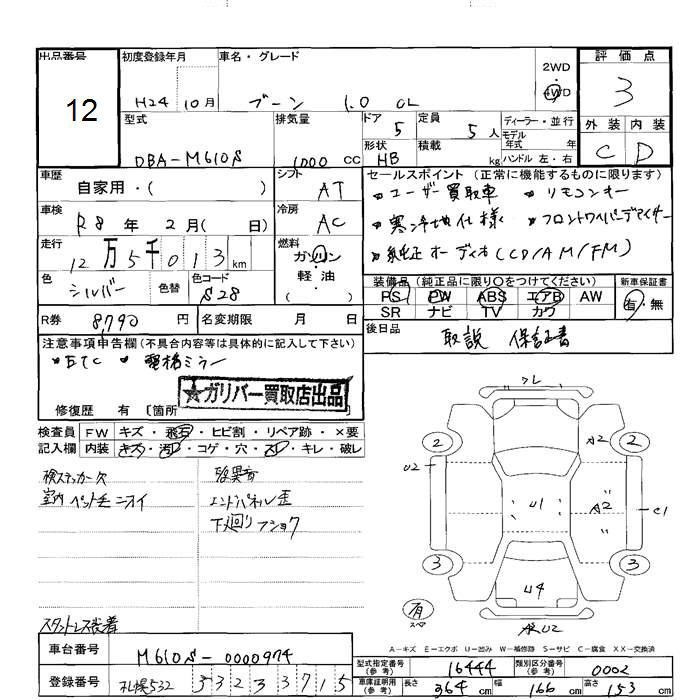 出品番号
12
初度登録年月
H24 10月
車名・グレード
ブーン 1.0 CL
2WD
・
4WD
評価点
3
外装 内装
C D
型式
DBA-M610S
排気量
1000 CC
ドア
5
定員
5 人
形状
HB
積載
kg
ディーラー・並行
モデル
年式 年
ハンドル 左・右
車歴
自家用・( )
シフト
AT
セールスポイント (正常に機能するものに限ります)
ユーザー買取車 リモコンキー
寒冷地仕様 フロントワイパーデアイサー
純正オーディオ(CD/AM/FM)
車検
R8 年 2月( 日)
冷房
AC
走行
12万5千013km
燃料
ガソリン
軽・油
( )
色
シルバー
色替
色コード
S28
装備品 (純正品に限り〇をつけてください)
PS PW ABS エアB AW
SR ナビ TV カワ
新車保証書
有・無
R券
8,790 円
名変期限 月 日
後日品
取説 保証書
注意事項申告欄(不具合内容等は具体的に記入して下さい)
ETC 電格ミラー
★ガリバー買取店出品
修復歴 有 〔箇所
検査員
記入欄
FW キズ・飛石・ヒビ割・リペア跡・×要
内装 キズ・汚れ・コゲ・穴・スレ・キレ・破レ
検ステッカー欠
室内ペット毛ニオイ
エンドパネル歪
下廻りフショク
スタッドレス装着
ワレ
2
A2
2
U2
U1
A2
C1
3
3
U4
有
スペア
A-キズ E-エクボ U-凹み W-補修跡 S-サビ C-腐食 XX-交換済
車台番号
M610S-0000974
登録番号
札幌532 3323715
型式指定番号
(参考)
16444
類別区分番号
(参考)
0002
車庫証明用
(参考)
長さ 364 cm
幅 166 cm
高さ 153 cm